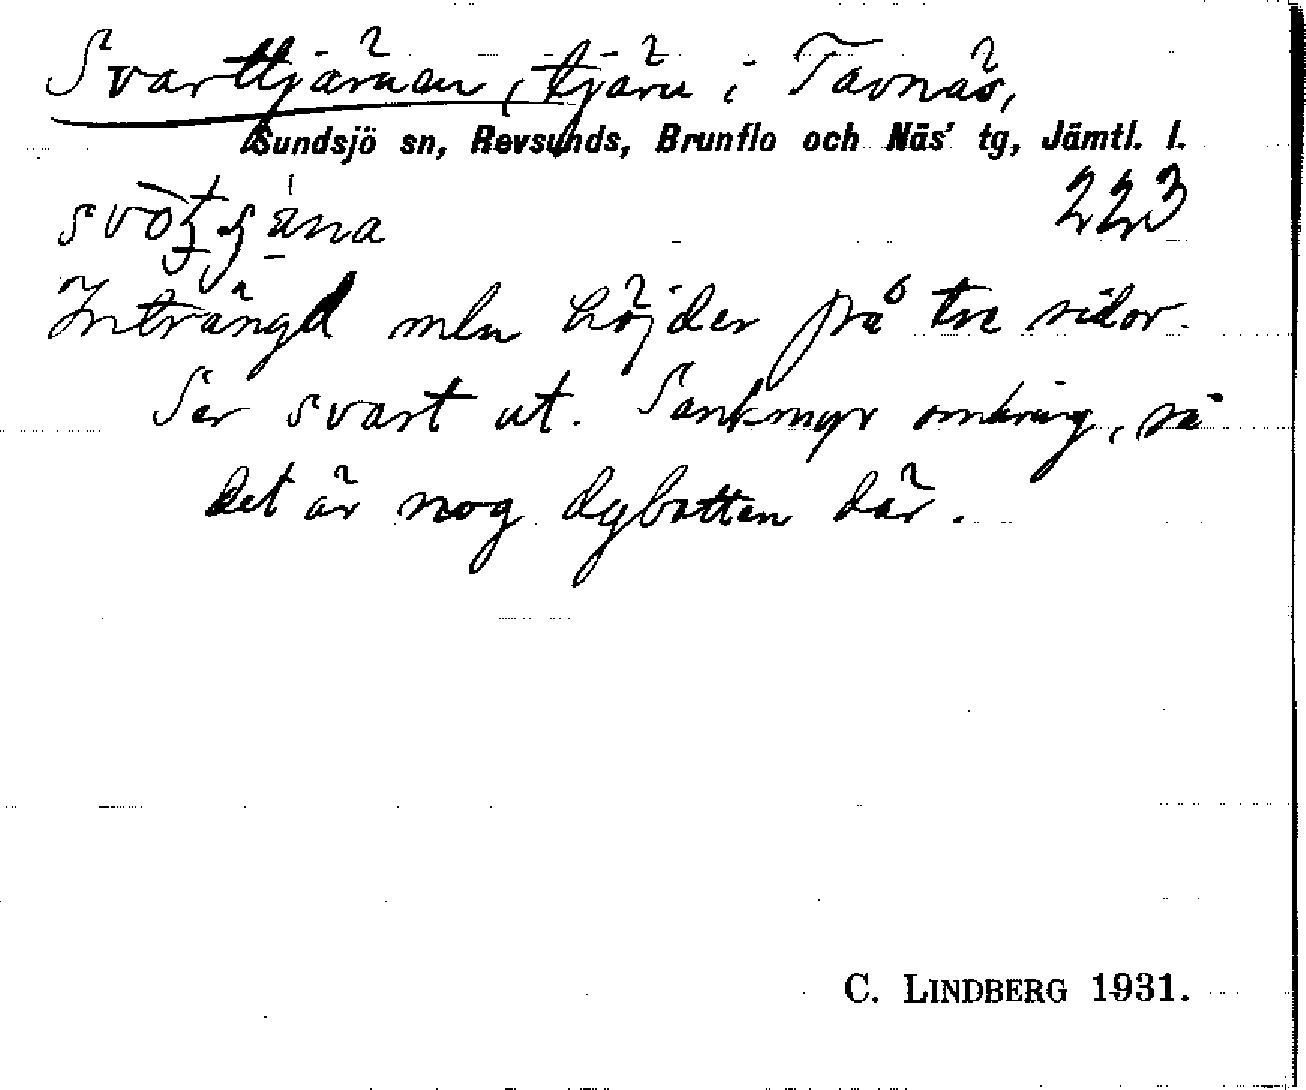 Svarttjärnen, tjärn i Tavnäs,
Sundsjö sn, Revsunds, Brunflo och Näs' tg, Jämtl. l.
223
Inträngd mln höjder på tre sidor.
Ser svart ut. Sankmyr omkring, så
det är nog dybotten där.
C. LINDBERG 1931.